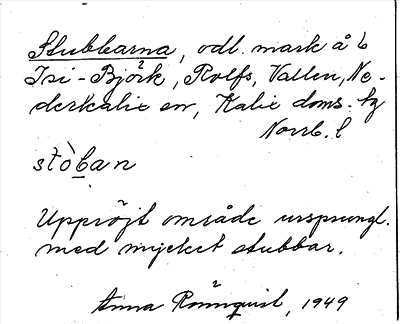 Stubbarna, odl. mark å 6
Isi-Björk, Rolfs, Vallen, Ne-
derkalix sn, Kalix doms. tg
Norrb. l
stòban
Uppröjt område ursprungl.
med mycket stubbar.
Anna Rönnquist, 1949